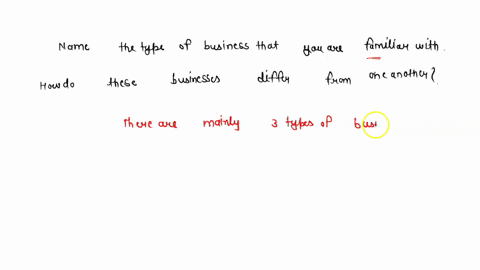 Name the type of business that you are familiar with.
How do these businesses differ from one another?
there are mainly 3 types of busi